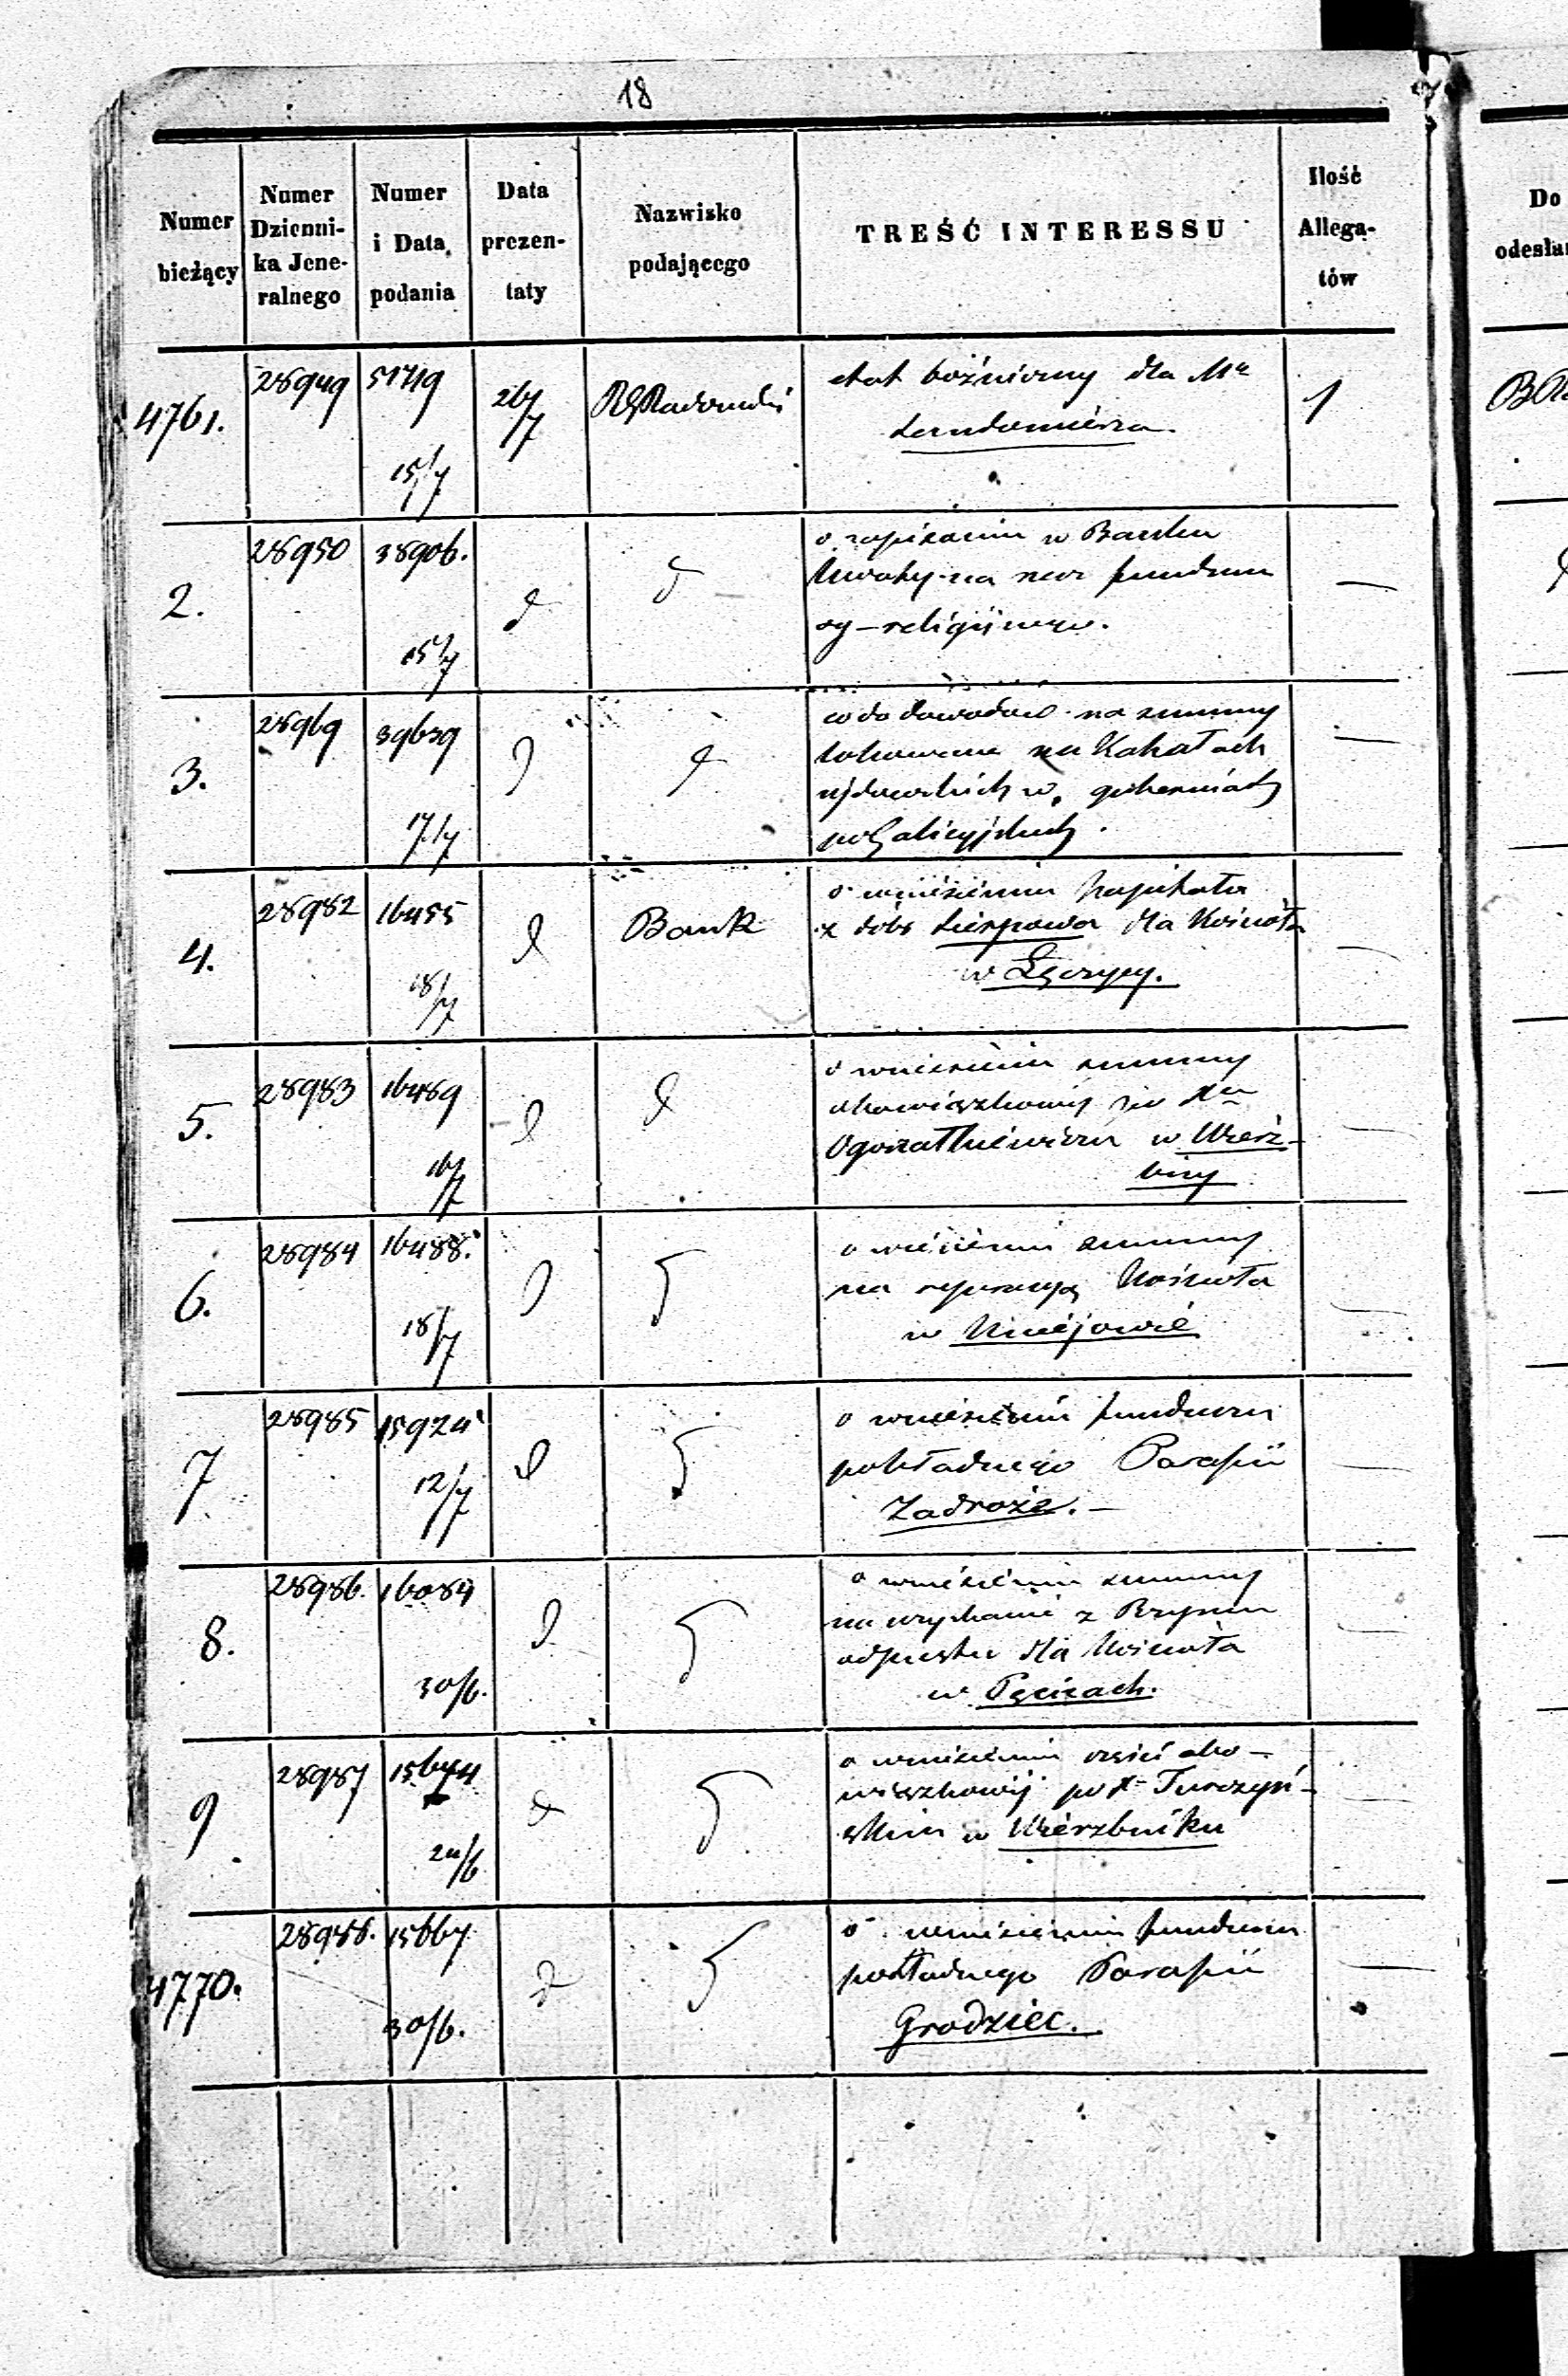 18
Numer bieżący
Numer Dzienni-ka Jene-ralnego
Numer i Data podania
Data prezen-taty
Nazwisko podającego
TREŚĆ INTERESSU
Ilość Allega-tów
Do
odesłan
4761.
28949
51719
15/7
26/7
RG Radomski
etat bóźniczny dla Mta
Sandomierza.
1
2.
28950
38906.
15/7
d
d
o zapisanie w Banku
kwoty na rzecz fundusz
religijnego.
—
3.
28969
39639
17/7
d
d
co do dowodów na summy
lokowane na Kahałach
żydowskich w guberniach
po Galicyjskich.
—
4.
28982
16485
18/7
d
Bank
o wniesieniu kapitału
z dóbr Sierpowa dla Kościoła
w Łęczycy.
—
5.
28983
16489
16/7
d
d
o wniesieniu summy
w Wierz-
biny
—
6.
28984
16488.
18/7
d
d
o wniesieniu summy
na reperacyą Kościoła
w Uniejowie
—
7
28985
15924
12/7
d
d
o wniesieniu funduszu
pokładnego Parafii
Zadroże. —
—
8.
28986.
16084
30/6.
d
d
o wniesieniu summy
na uzyskanie z Rzymu
odpustu dla Kościoła
w Pęcicach.
—
9
28987
15644
24/6
d
d
o wniesieniu części obo-
wiązkowej po X Turczyń-
skim w Wierzbniku
—
4770.
28988.
15667
30/6.
d
d
o wniesieniu funduszu
pokładnego Parafii
Grodziec.
—